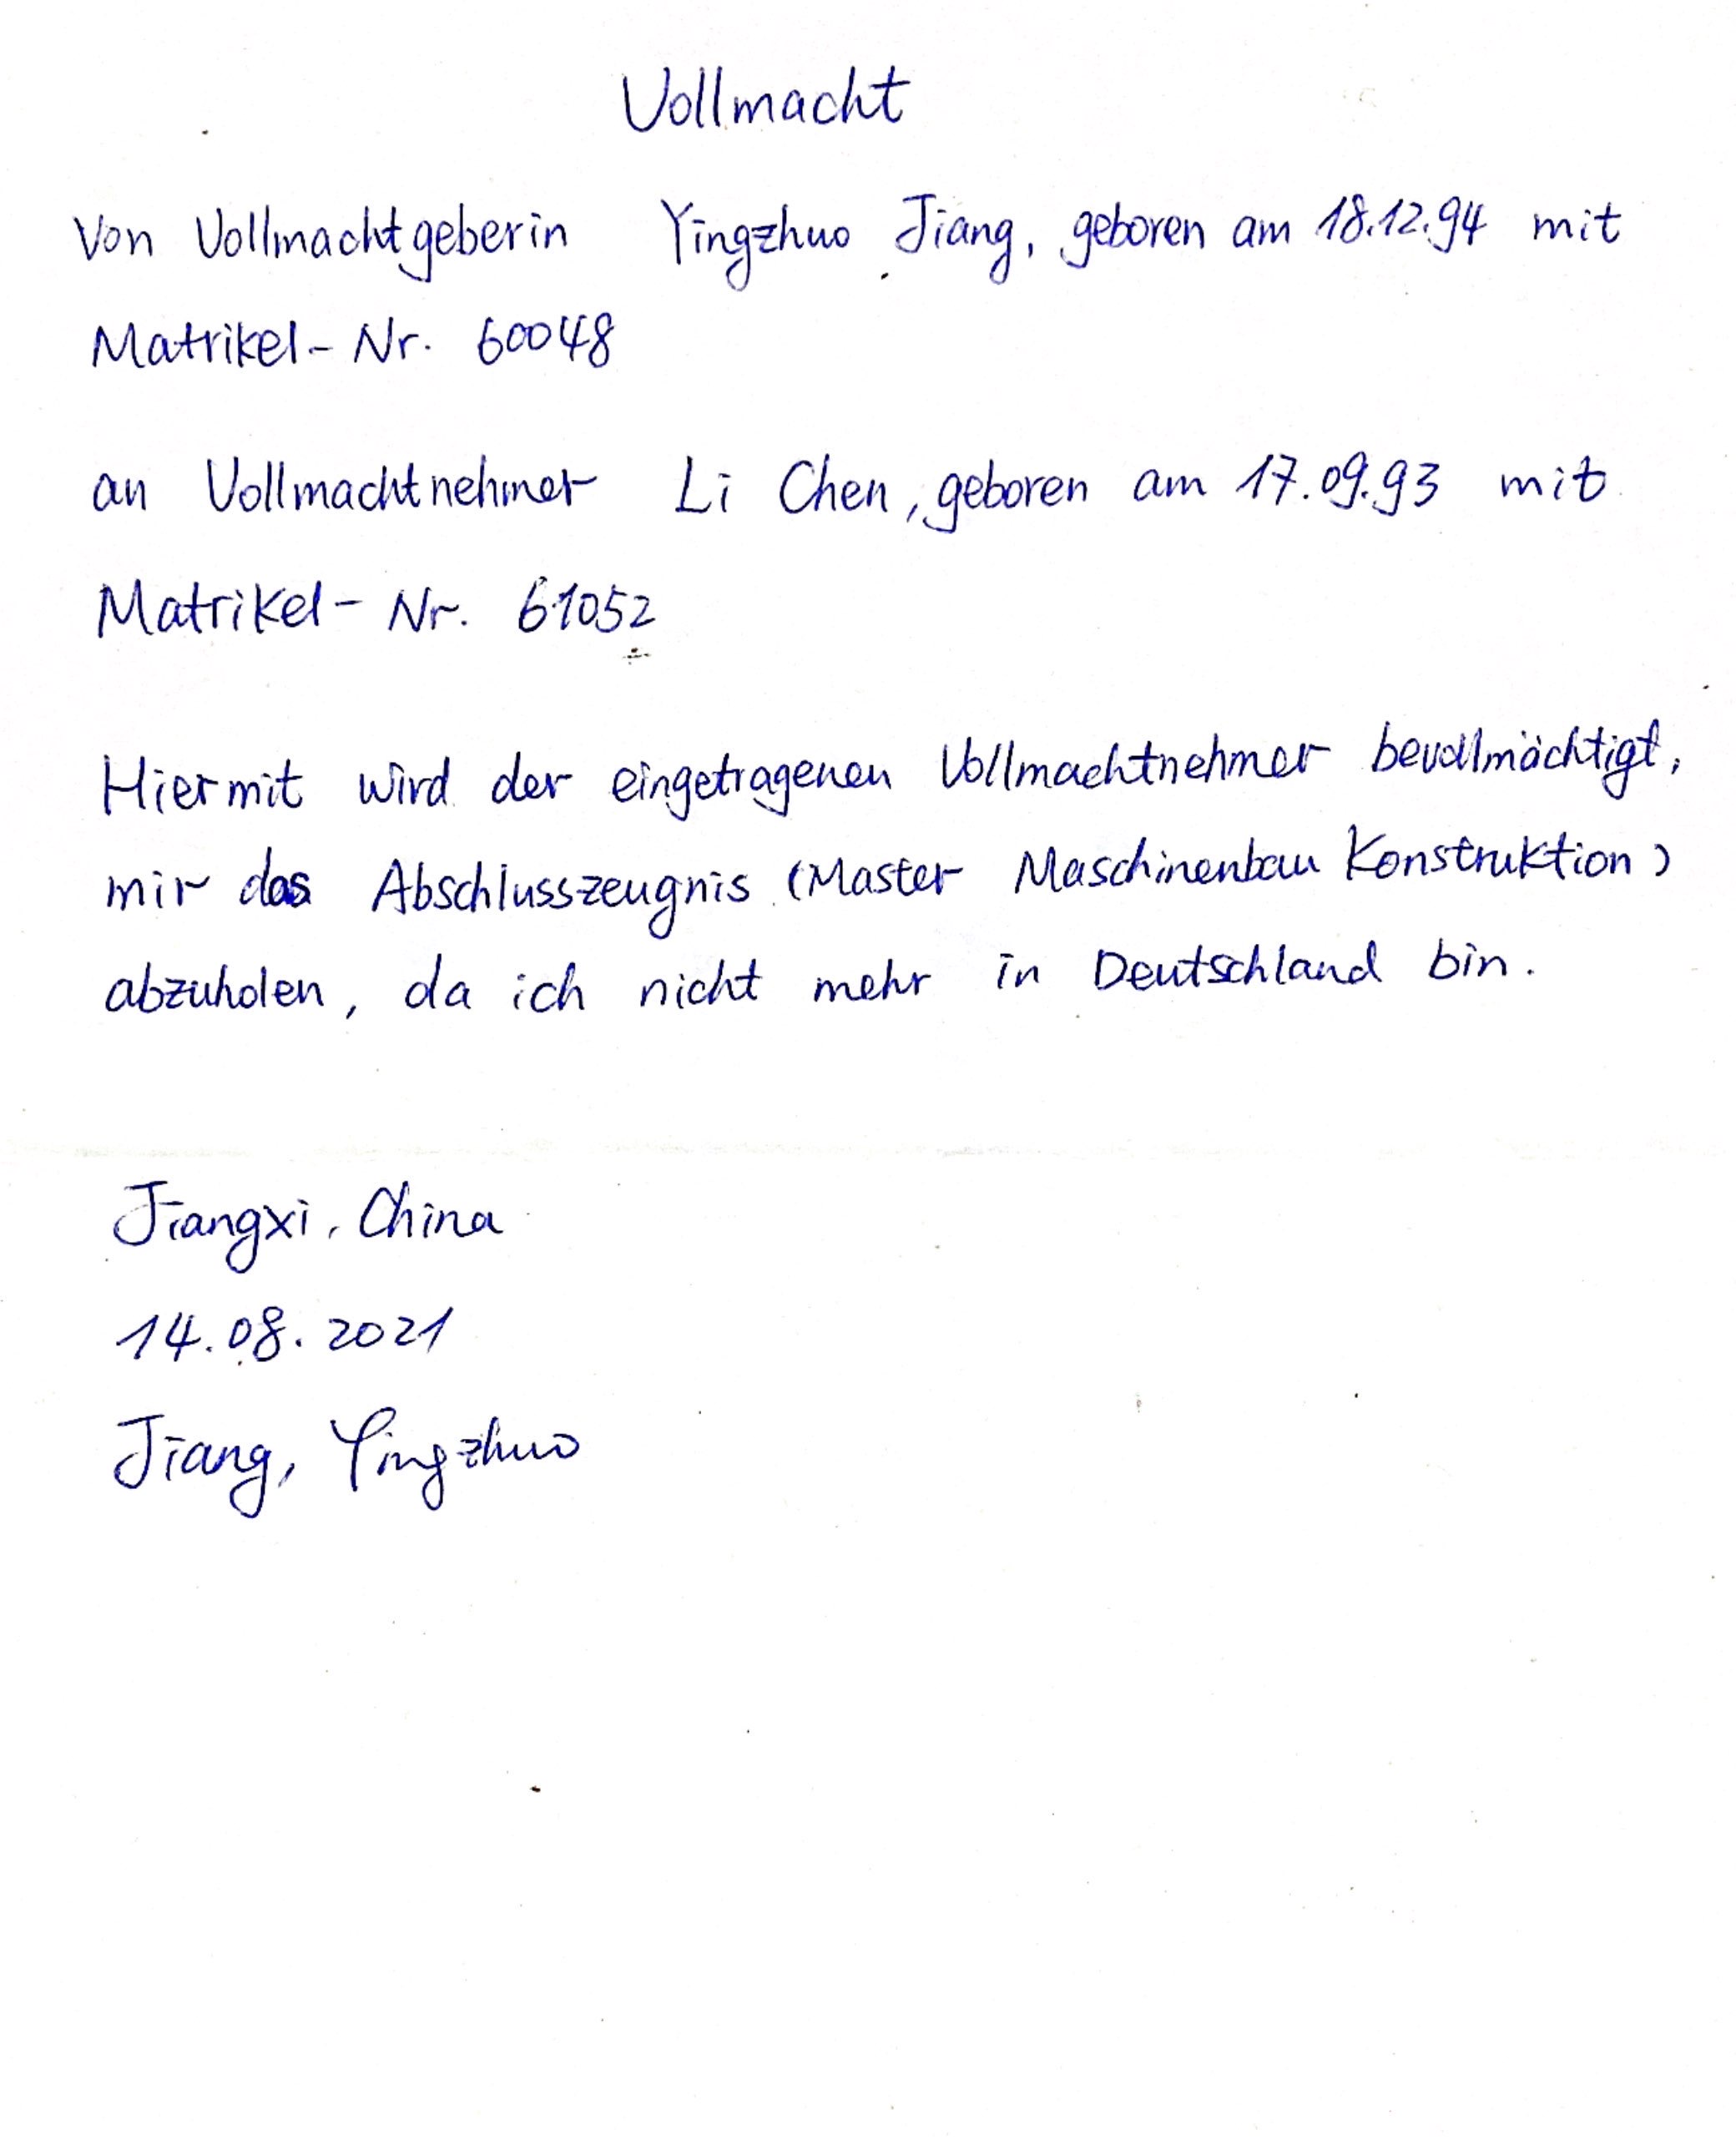 Vollmacht
Von Vollmachtgeberin Yingzhuo Jiang, geboren am 18.12.94 mit
Matrikel-Nr. 60048
an Vollmachtnehmer Li Chen, geboren am 17.09.93 mit
Matrikel-Nr. 61052
Hiermit wird der eingetragenen Vollmachtnehmer bevollmächtigt,
mir das Abschlusszeugnis (Master Maschinenbau Konstruktion)
abzuholen, da ich nicht mehr in Deutschland bin.
Jiangxi, China
14.08.2021
Jiang, Yingzhuo